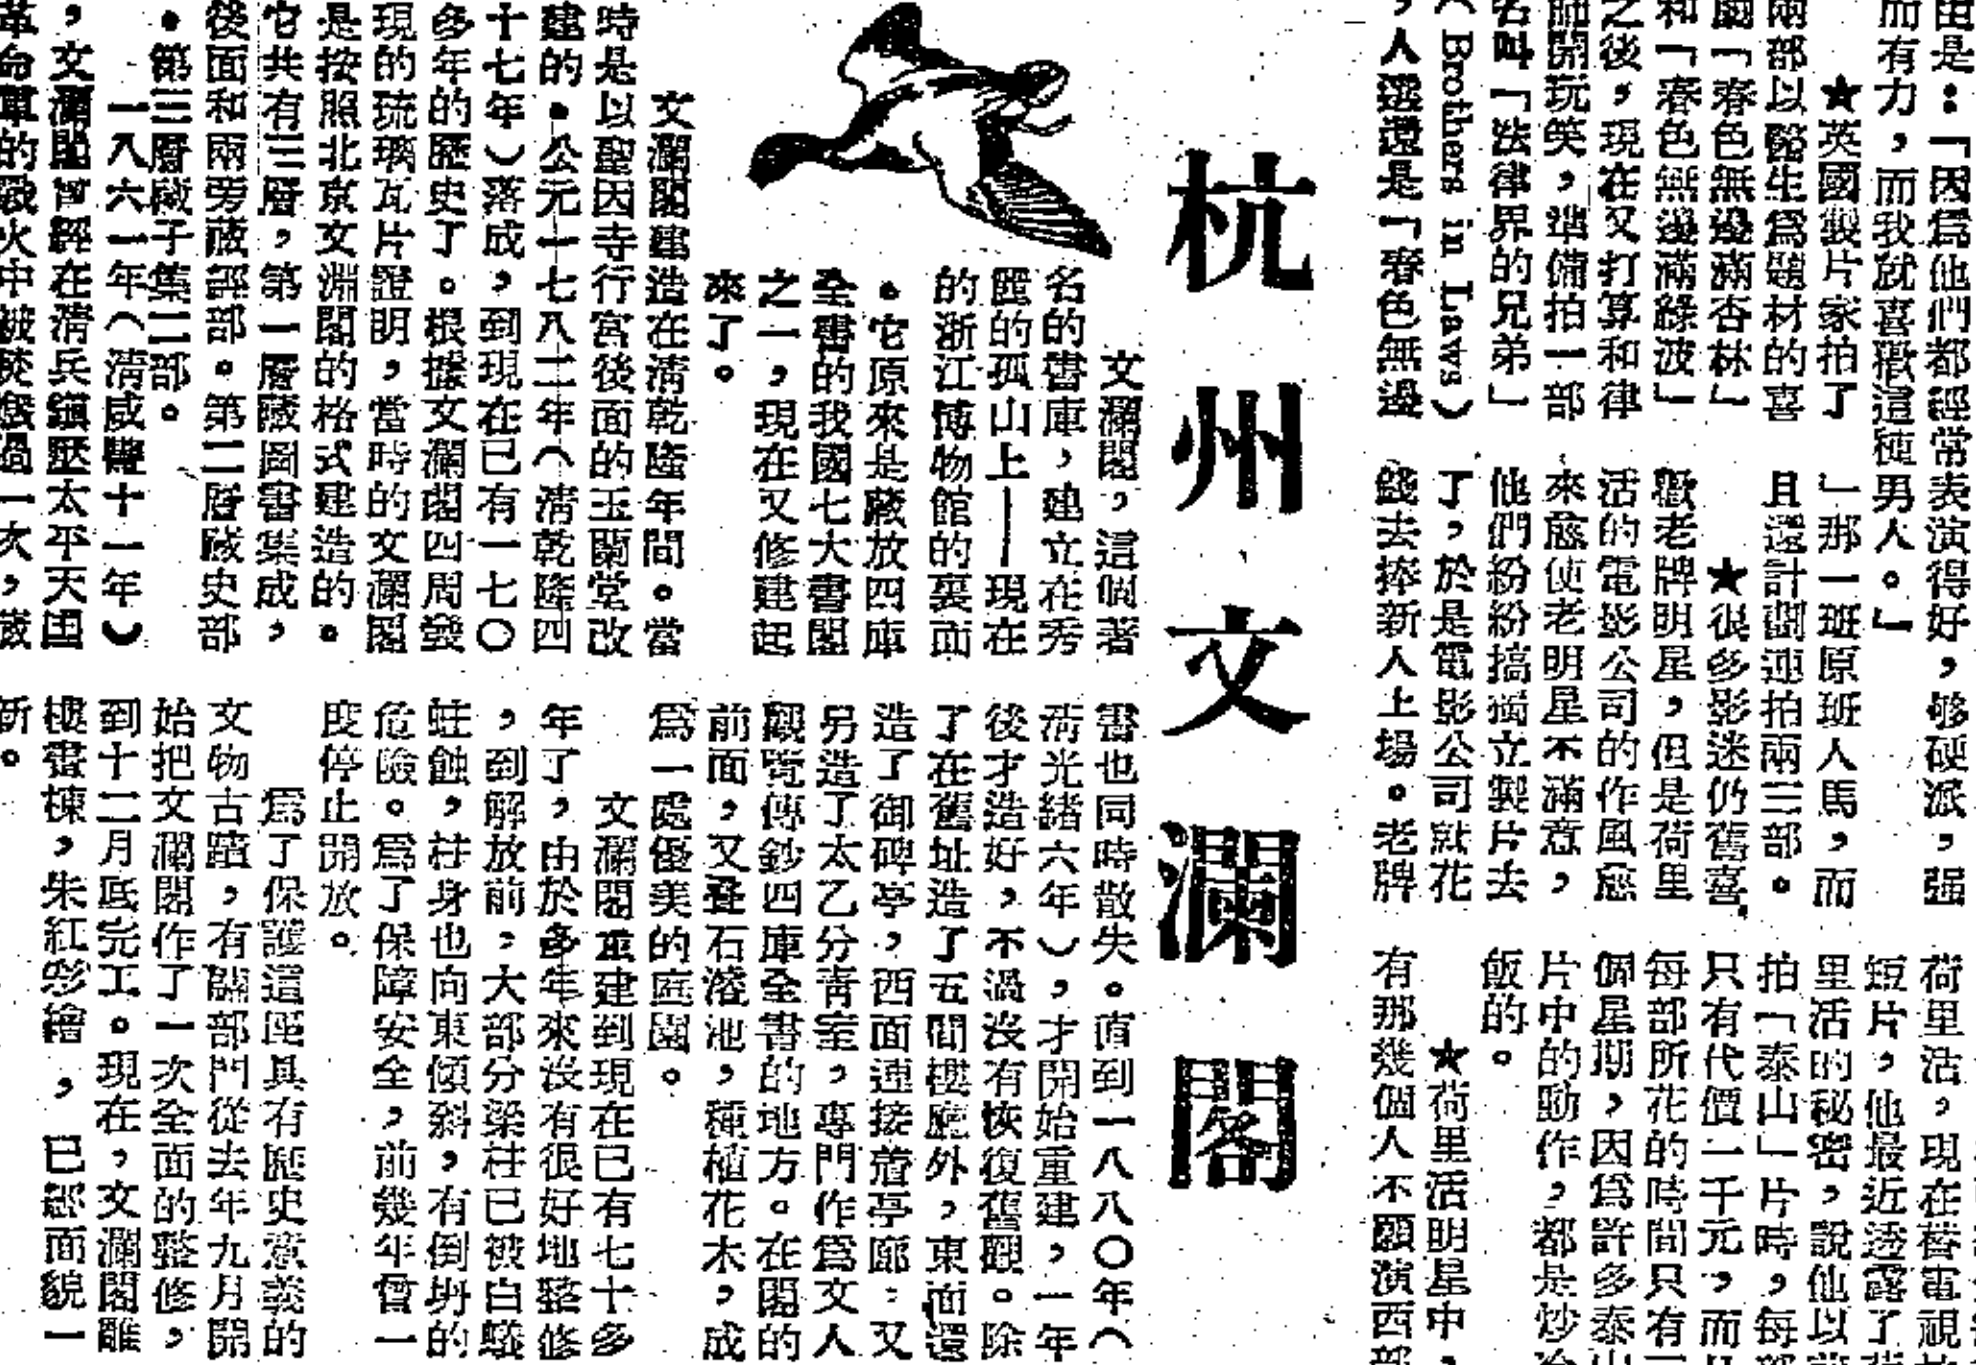 由是：「因爲他們都經常表演得好，够硬派，强
而有力，而我就喜歡這種男人。」
★英國製片家拍了
兩部以醫生爲題材的喜
劇「春色無邊滿杏林」
和「春色無邊滿綠波」
之後，現在又打算和律
師開玩笑，準備拍一部
名叫「法律界的兄弟」
（Brothers in Laws）
，人選還是「春色無邊
」那一班原班人馬，而
且還計劃連拍兩三部。
★很多影迷仍舊喜
歡老牌明星，但是荷里
活的電影公司的作風愈
來愈使老明星不滿意，
他們紛紛搞獨立製片去
了，於是電影公司就花
錢去捧新人上場。老牌
荷里活，現在替電視
短片，他最近透露了
里活的秘密，說他以
拍「泰山」片時，每
只有代價一千元，而
每部所花的時間只有
個星期，因爲許多泰
片中的動作，都是炒
飯的。
★荷里活明星中，
有那幾個人不願演西部
杭州文瀾閣
文瀾閣，這個著
名的書庫，建立在秀
麗的孤山上——現在
的浙江博物館的裏面
。它原來是藏放四庫
全書的我國七大書閣
之一，現在又修建起
來了。
文瀾閣建造在清乾隆年間。當
時是以聖因寺行宮後面的玉蘭堂改
建的。公元一七八二年（清乾隆四
十七年）落成，到現在已有一七〇
多年的歷史了。根據文瀾閣四周發
現的琉璃瓦片證明，當時的文瀾閣
是按照北京文淵閣的格式建造的。
它共有三層，第一層藏圖書集成，
後面和兩旁藏經部。第二層藏史部
。第三層藏子集二部。
一八六一年（清咸豐十一年）
，文瀾閣曾經在清兵鎭壓太平天国
革命軍的戰火中被焚燬過一次，藏
書也同時散失。直到一八八〇年（
清光緒六年），才開始重建，一年
後才造好，不過沒有恢復舊觀。除
了在舊址造了五間樓廳外，東面還
造了御碑亭，西面連接着亭廊；又
另造了太乙分青室，專門作爲文人
觀覽傳鈔四庫全書的地方。在閣的
前面，又叠石濬池，種植花木，成
爲一處優美的庭園。
文瀾閣重建到現在已有七十多
年了，由於多年來沒有很好地整修
，到解放前，大部分梁柱已被白蟻
蛀蝕，柱身也向東傾斜，有倒坍的
危險。爲了保障安全，前幾年曾一
度停止開放。
爲了保護這座具有歷史意義的
文物古蹟，有關部門從去年九月開
始把文瀾閣作了一次全面的整修，
到十二月底完工。現在，文瀾閣雕
樓畫棟，朱紅彩繪，已經面貌一
新。